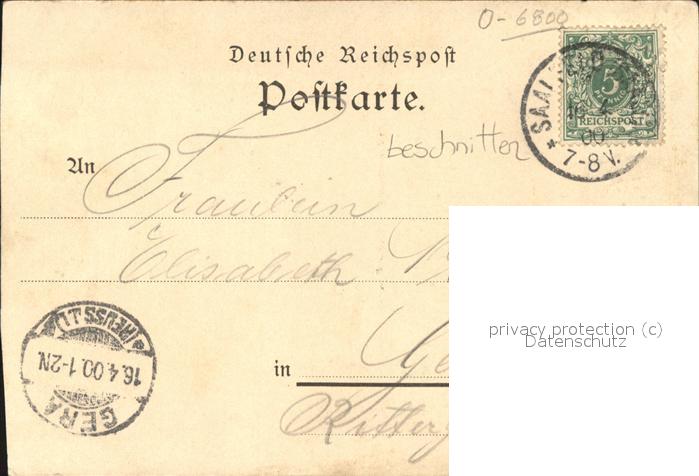 O-6800
Deutsche Reichspost
Postkarte.
5
REICHSPOST
SAALFELD
00
* 7-8 V.
beschnitten
An
Fräulein
Elisabeth
privacy protection (c)
Datenschutz
in
GERA
(REUSS 1.T.)
16.4.00.1-2N.